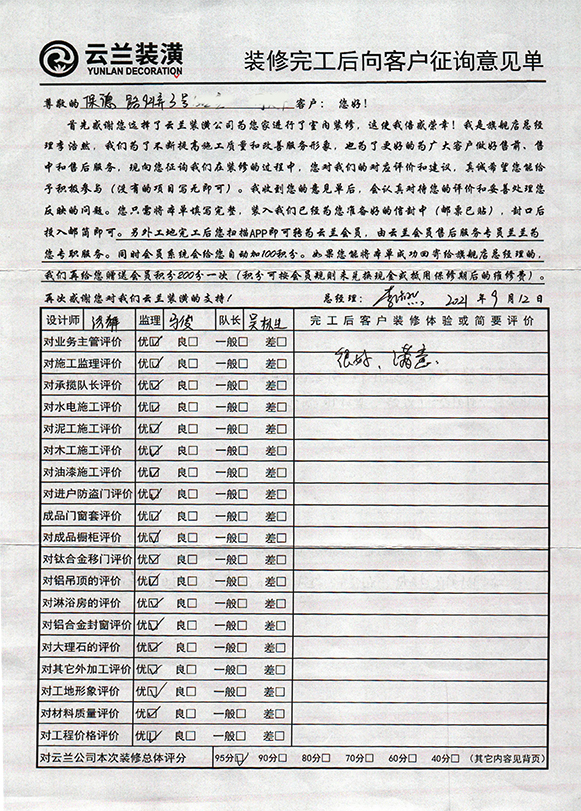 云兰装潢
YUNLAN DECORATION
装修完工后向客户征询意见单
尊敬的 保德路 弄3号 客户： 您好！
首先感谢您选择了云兰装潢公司为您家进行了室内装修，这使我倍感荣幸！我是旗舰店总经
理李浩然，我们为了不断提高施工质量和改善服务形象，也为了更好的为广大客户做好售前、售
中和售后服务，现向您征询我们在装修的过程中，您对我们的对应评价和建议，真诚希望您能给
予积极参与（没有的项目写无即可）。我收到您的意见单后，会认真对待您的评价和妥善处理您
反映的问题。您只需将本单填写完整，装入我们已经为您准备好的信封中（邮票已贴），封口后
投入邮筒即可。另外工地完工后您扫描APP即可转为云兰会员，由云兰会员售后服务专员兰兰为
您专职服务。同时会员系统会给您自动加100积分。如果您能将本单成功回寄给旗舰店总经理的，
我们再给您赠送会员积分200分一次（积分可按会员规则来兑换现金或抵用保修期后的维修费）。
再次感谢您对我们云兰装潢的支持！ 总经理： 2021 年 9 月 12 日
设计师 监理 队长 完工后客户装修体验或简要评价
对业务主管评价 优☑ 良□ 一般□ 差□
对施工监理评价 优☑ 良□ 一般□ 差□ 很好、满意、
对承揽队长评价 优☑ 良□ 一般□ 差□
对水电施工评价 优☑ 良□ 一般□ 差□
对泥工施工评价 优☑ 良□ 一般□ 差□
对木工施工评价 优☑ 良□ 一般□ 差□
对油漆施工评价 优☑ 良□ 一般□ 差□
对进户防盗门评价 优☑ 良□ 一般□ 差□
成品门窗套评价 优☑ 良□ 一般□ 差□
对成品橱柜评价 优☑ 良□ 一般□ 差□
对钛合金移门评价 优☑ 良□ 一般□ 差□
对铝吊顶的评价 优☑ 良□ 一般□ 差□
对淋浴房的评价 优☑ 良□ 一般□ 差□
对铝合金封窗评价 优☑ 良□ 一般□ 差□
对大理石的评价 优☑ 良□ 一般□ 差□
对其它外加工评价 优☑ 良□ 一般□ 差□
对工地形象评价 优☑ 良□ 一般□ 差□
对材料质量评价 优☑ 良□ 一般□ 差□
对工程价格评价 优☑ 良□ 一般□ 差□
对云兰公司本次装修总体评分 95分☑ 90分□ 80分□ 70分□ 60分□ 40分□ （其它内容见背页）